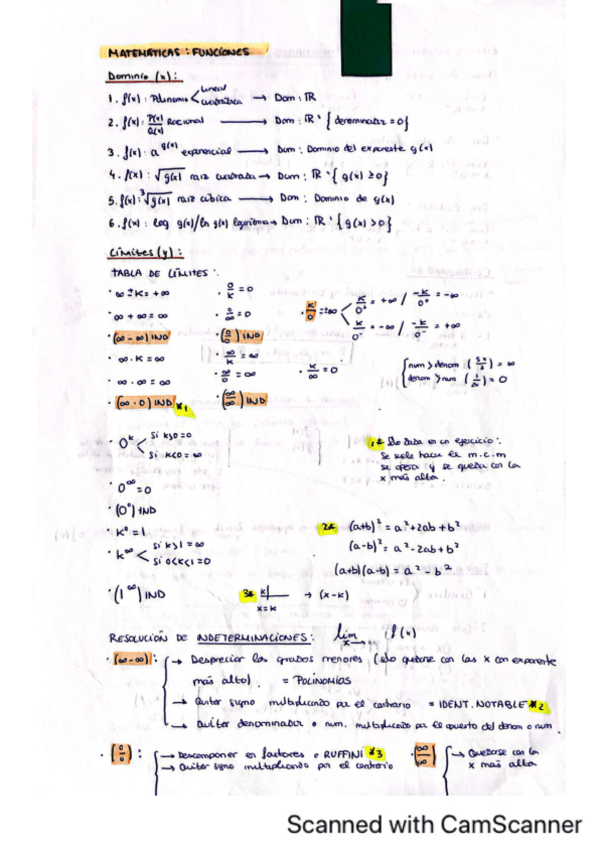 MATEMÁTICAS: FUNCIONES
Dominio (x):
1. f(x): Polinomio < lineal cuadrática → Dom: ℝ
2. f(x): P(x)/Q(x) Racional → Dom: ℝ - {denominador = 0}
3. f(x): a^g(x) exponencial → Dom: Dominio del exponente g(x)
4. f(x): √g(x) raiz cuadrada → Dom: ℝ - {g(x) ≥ 0}
5. f(x): ³√g(x) raiz cúbica → Dom: Dominio de g(x)
6. f(x): log g(x)/ln g(x) logaritmo → Dom: ℝ - {g(x) > 0}
Límites (y):
TABLA DE LÍMITES:
· ∞ ± K = +∞
· ∞ + ∞ = ∞
· (∞ - ∞) IND
· ∞ · K = ∞
· ∞ · ∞ = ∞
· (∞ · 0) IND *1
· 0/K = 0
· (0/0) IND
· ∞/K = ∞
· ∞/0 = ∞
· (∞/∞) IND
· K/0 = ±∞ < K/0⁺ = +∞ / -K/0⁺ = -∞
K/0⁻ = -∞ / -K/0⁻ = +∞
· K/∞ = 0
num > denom = ∞
denom > num = 0
· 0^K < si K>0 = 0
si K<0 = ∞
· 0^∞ = 0
· (0⁰) IND
· K⁰ = 1
· K^∞ < si K>1 = ∞
si 0<K<1 = 0
· (1^∞) IND
1* en un ejercicio:
se suele hacer el m.c.m
se opera y se queda con la
x más alta.
2* (a+b)² = a²+2ab+b²
(a-b)² = a²-2ab+b²
(a+b)(a-b) = a² - b²
3* K|
x=K → (x-K)
RESOLUCIÓN DE INDETERMINACIONES: lim x→ f(x)
· (∞-∞): → Despreciar los grados menores (solo quedarse con las x con exponente
más alto). = POLINOMIOS
→ Quitar signo multiplicando por el contrario = IDENT. NOTABLE *2
→ Quitar denominador o num. multiplicado por el opuesto del denom o num.
· (0/0): → Descomponer en factores o RUFFINI *3
→ Quitar signo multiplicando por el contrario
· (∞/∞) → Quedarse con la
x más alta
Scanned with CamScanner